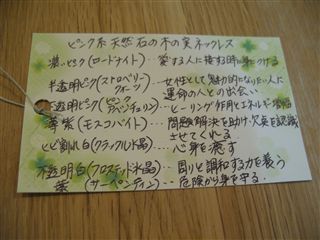 ピンク系天然石の木の実ネックレス
濃いピンク(ロードナイト)‥‥愛する人に接する時に身につける
半透明ピンク(ストロベリークォーツ)‥‥女性として魅力的になりたい人に
運命の人との出会い
不透明ピンク(ピンクアベンチュリン)‥‥ヒーリング作用とエネルギー増幅
薄紫(モスコバイト)‥‥問題解決を助け、欠点を認識
させてくれる
ひび割れ白(クラック水晶)‥‥心身を癒す
不透明白(フロステッド水晶)‥‥周りと調和する力を養う
紫(サーペンティン)‥‥危険から身を守る。